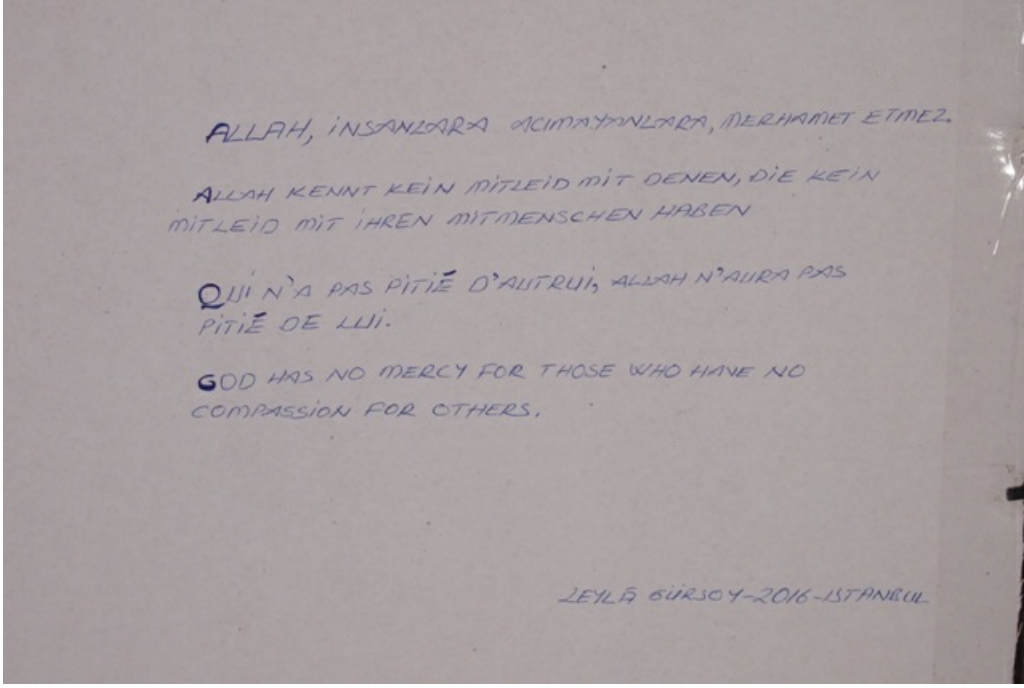 ALLAH, İNSANLARA ACIMAYANLARA, MERHAMET ETMEZ.
ALLAH KENNT KEIN MITLEID MIT DENEN, DIE KEIN
MITLEID MIT IHREN MITMENSCHEN HABEN
QUI N'A PAS PITIÉ D'AUTRUI, ALLAH N'AURA PAS
PITIÉ DE LUI.
GOD HAS NO MERCY FOR THOSE WHO HAVE NO
COMPASSION FOR OTHERS.
LEYLÂ GÜRSOY-2016-ISTANBUL